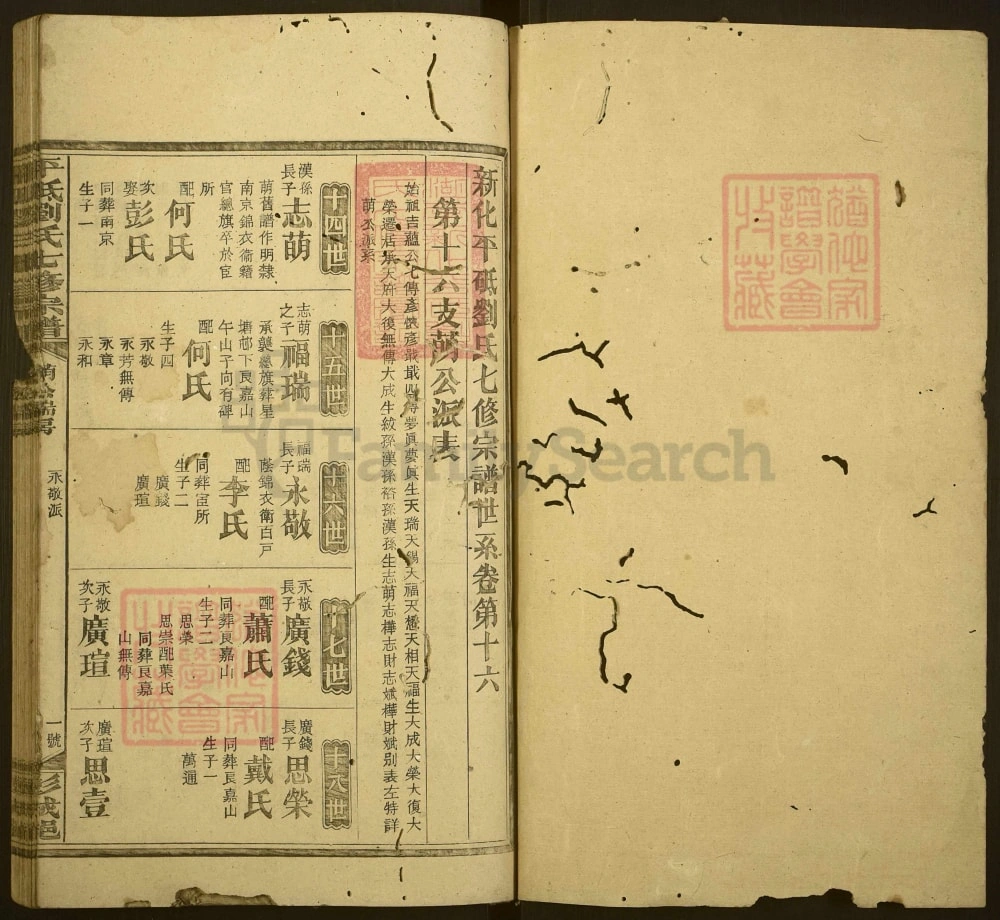 新化平砥劉氏七修宗譜世系卷第十六
第十六支萌公派表
始祖吉蘊公七傳彥懷彥戢戢四傳夢眞夢眞生天瑞天錫大福天檖天相天福生大成大榮大復大
榮遷居承天府大後無傳大成生紋孫漢孫裕孫漢孫生志萌志樺志財志斌樺財斌别表左特詳
萌公派系
十四世
漢孫
長子
志萌
萌舊譜作明隸
南京錦衣衛籍
官總旗卒於官
所
配
何氏
次
娶
彭氏
同葬南京
生子一
十五世
志萌
之子
福瑞
承襲總旗葬星
塘邨下良嘉山
午山子向有碑
配
何氏
生子四
永敬
永芳無傳
永章
永和
十六世
福瑞
長子
永敬
蔭錦衣衛百戶
配
李氏
同葬宦所
生子二
廣錢
廣瑄
十七世
永敬
長子
廣錢
配
蕭氏
同葬良嘉山
生子二
思榮
思崇配葉氏
同葬良嘉
山無傳
永敬
次子
廣瑄
十八世
廣錢
長子
思榮
配
戴氏
同葬良嘉山
生子一
萬通
廣瑄
次子
思壹
平砥劉氏七修宗譜
永敬派
一號
彭城邑
FamilySearch